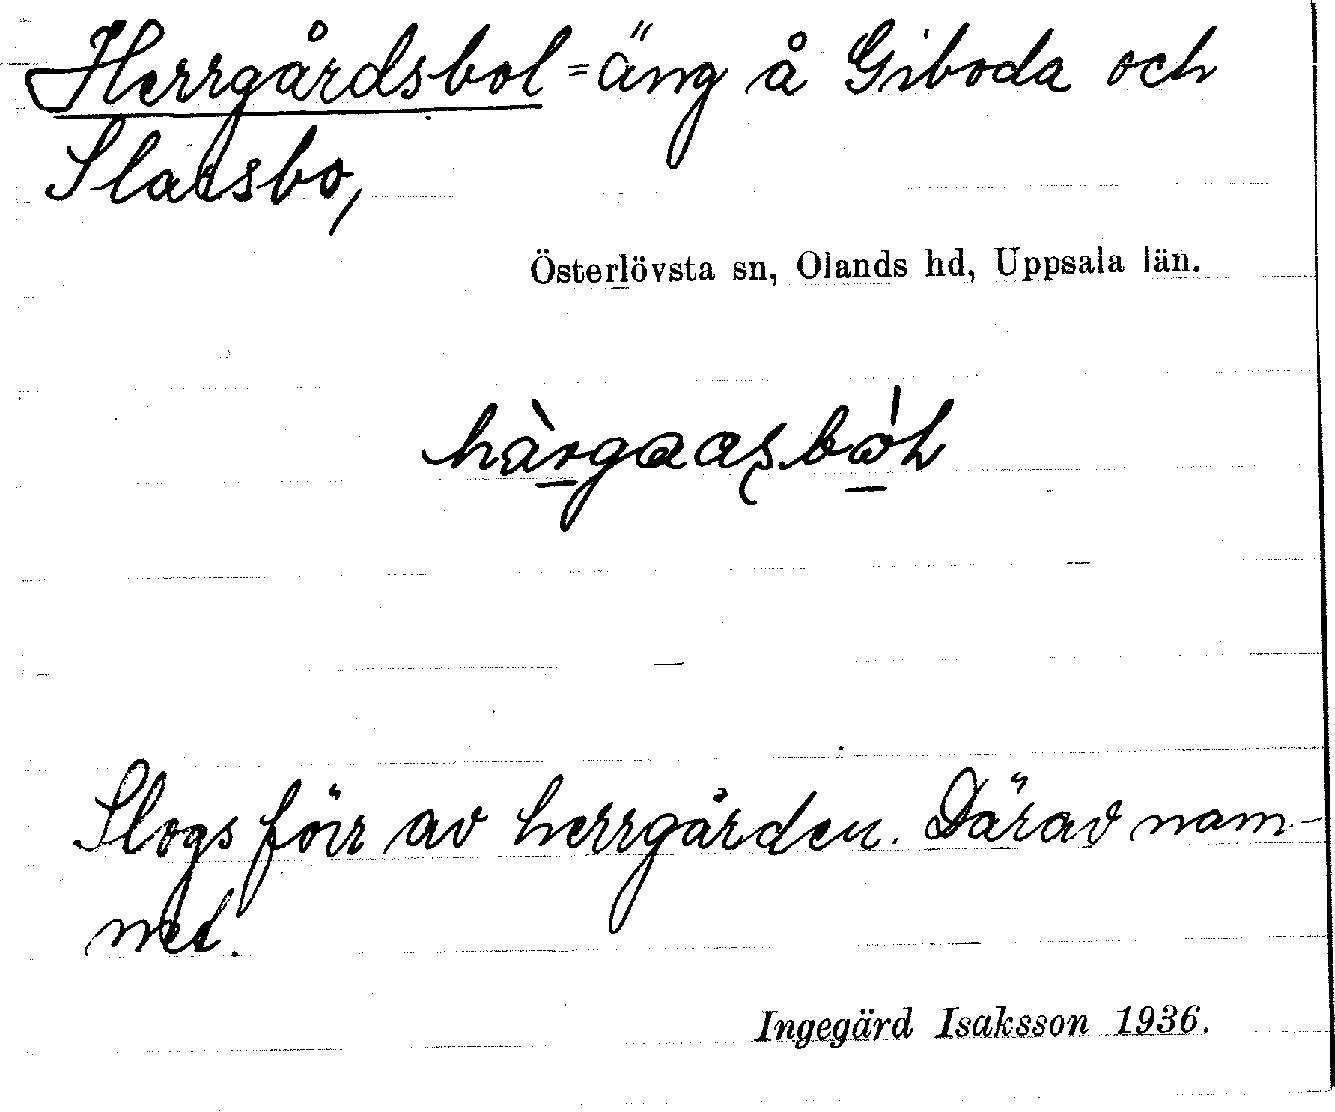 Herrgårdsbol = äng å Giboda och
Sladsbo,
Österlövsta sn, Olands hd, Uppsala län.
hàrgaasbòL
Slogs förr av herrgården. Därav nam-
net.
Ingegärd Isaksson 1936.